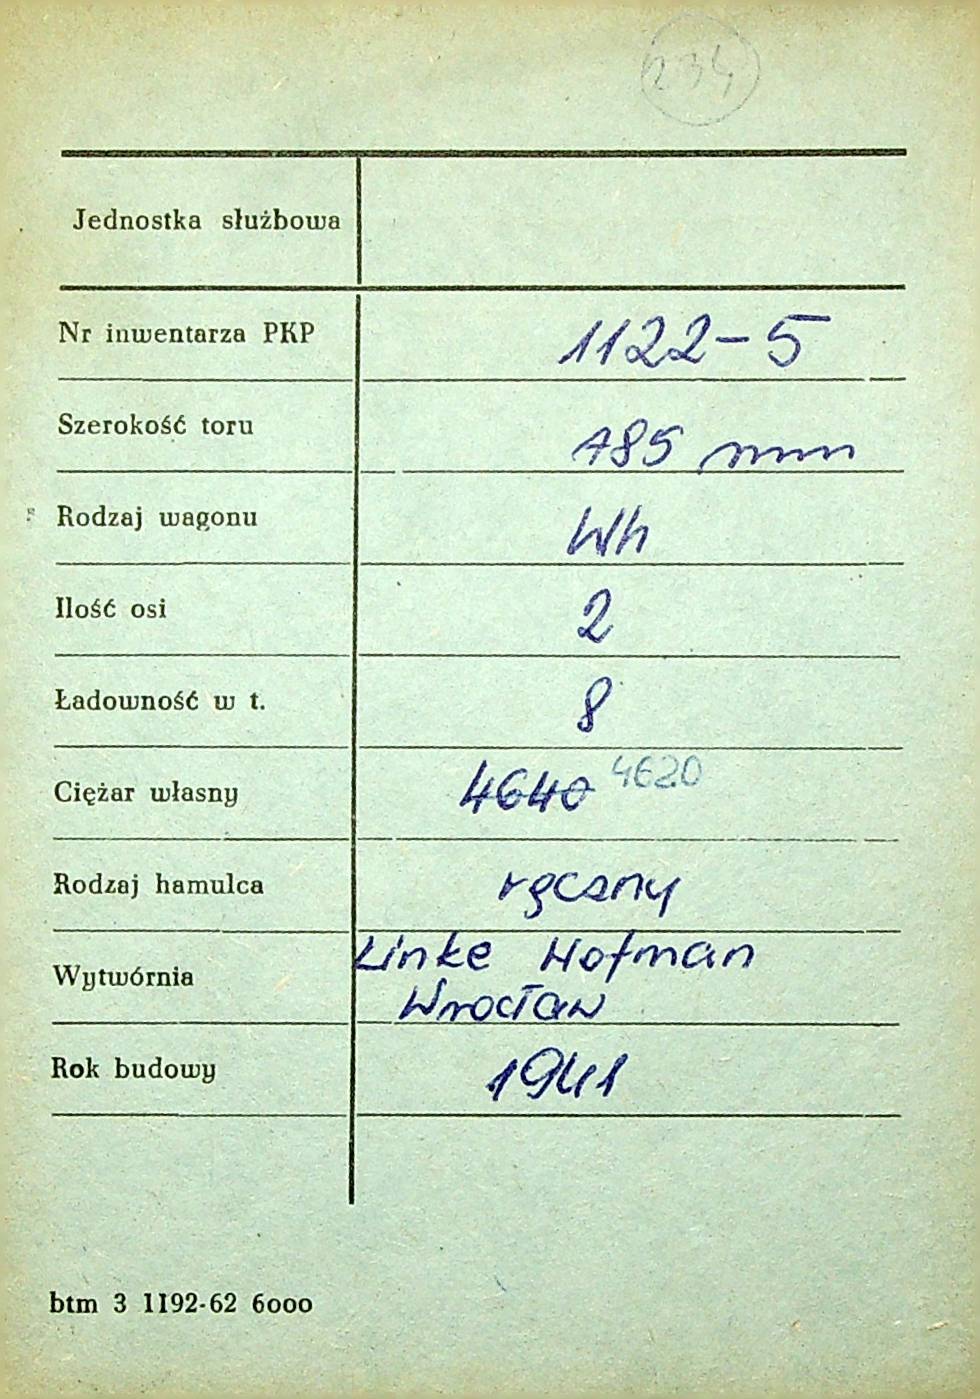 234
Jednostka służbowa
Nr inwentarza PKP 1122-5
Szerokość toru 785 mm
Rodzaj wagonu Wh
Ilość osi 2
Ładowność w t. 8
Ciężar własny 4640 4620
Rodzaj hamulca ręczny
Wytwórnia Linke Hofman
Wrocław
Rok budowy 1941
btm 3 1192-62 6000